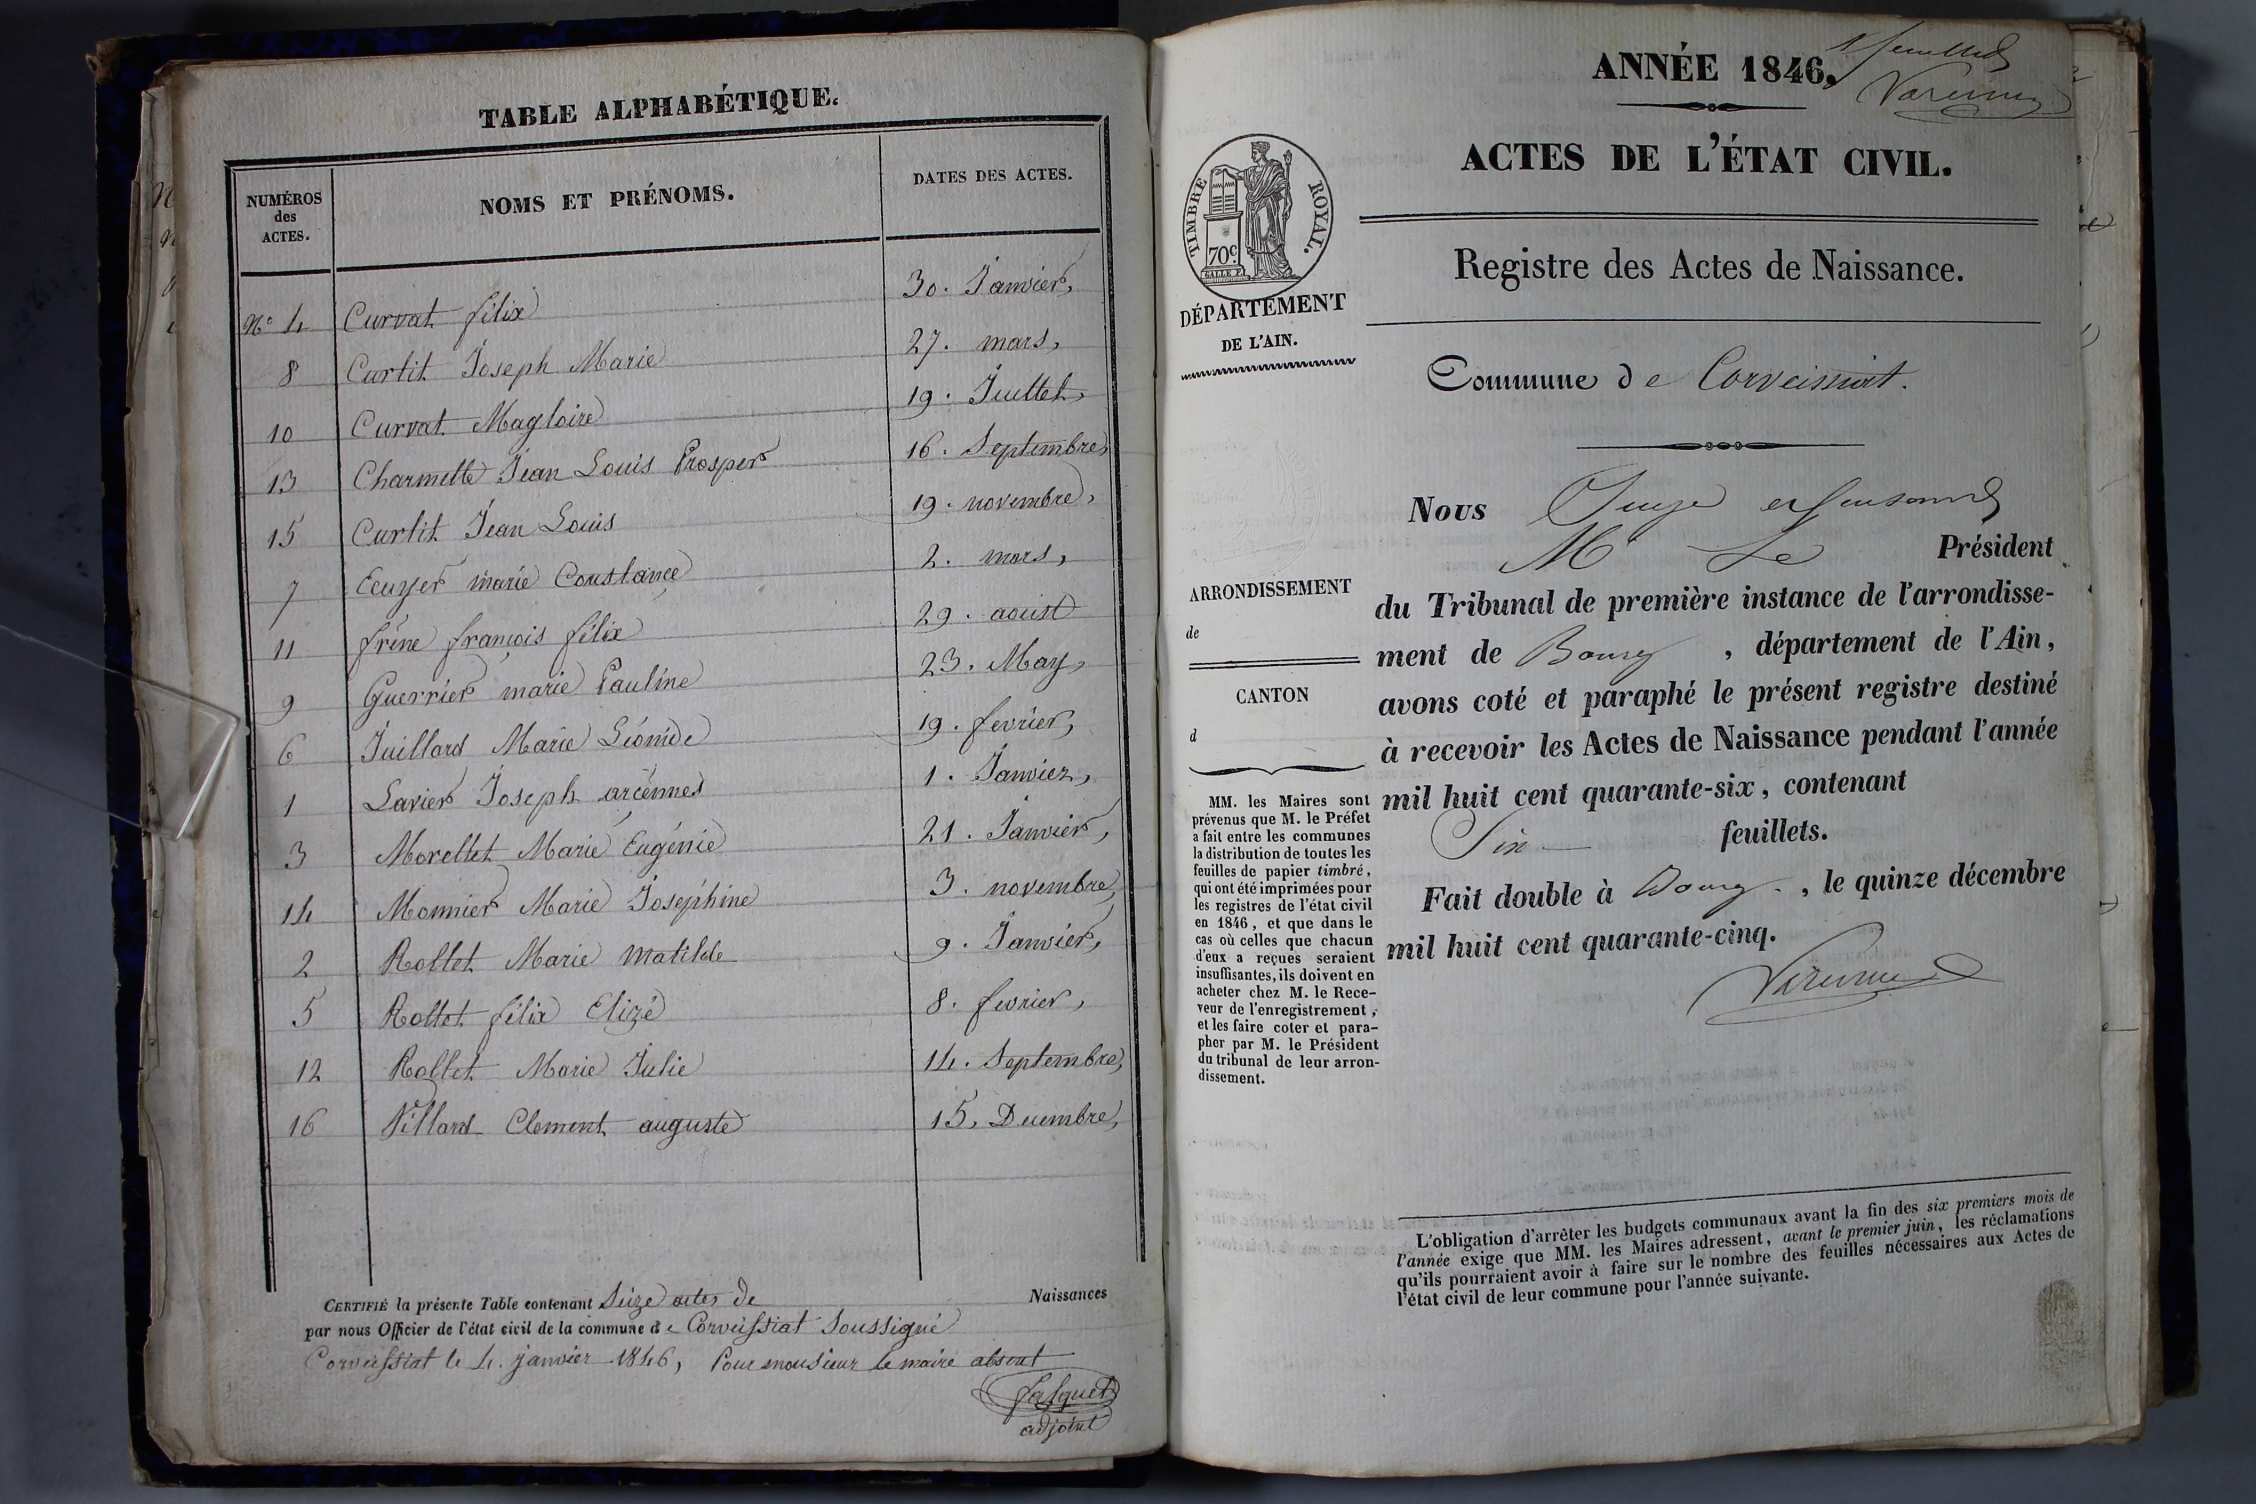 TABLE ALPHABÉTIQUE.
NUMÉROS des ACTES. NOMS ET PRÉNOMS. DATES DES ACTES.
N° 4 Curvat félix 30. Janvier,
8 Curtit Joseph Marie 27. mars,
10 Curvat Magloire 19. Juillet,
13 Charmette Jean Louis Prosper 16. Septembre,
15 Curtit Jean Louis 19. novembre,
7 Ecuyer marie Constance 2. mars,
11 frêne françois félix 29. aoust
9 Guerrier marie Pauline 23. May,
6 Juillard Marie Léonide 19. fevrier,
1 Lavier Joseph arcènnes 1. Janvier,
3 Morellet Marie Eugénie 21. Janvier,
14 Monnier Marie Joséphine 3. novembre,
2 Rollet Marie Matilde 9. Janvier,
5 Rollet félix Elizé 8. fevrier,
12 Rollet Marie Julie 14. Septembre,
16 Villard Clement auguste 15. Decembre,
CERTIFIÉ la présente Table contenant Seize actes de Naissances
par nous Officier de l'état civil de la commune de Corveissiat Soussigné
Corveissiat le 4. janvier 1846, Pour monsieur le maire absent
falquet
adjoint
ANNÉE 1846,
ACTES DE L'ÉTAT CIVIL.
TIMBRE ROYAL.
70c.
DÉPARTEMENT
DE L'AIN.
Registre des Actes de Naissance.
Commune de Corveissiat.
Nous Juge
M Le Président
du Tribunal de première instance de l'arrondisse-
ment de Bourg, département de l'Ain,
avons coté et paraphé le présent registre destiné
à recevoir les Actes de Naissance pendant l'année
mil huit cent quarante-six, contenant
Six feuillets.
Fait double à Bourg, le quinze décembre
mil huit cent quarante-cinq.
ARRONDISSEMENT
de
CANTON
d
MM. les Maires sont
prévenus que M. le Préfet
a fait entre les communes
la distribution de toutes les
feuilles de papier timbré,
qui ont été imprimées pour
les registres de l'état civil
en 1846, et que dans le
cas où celles que chacun
d'eux a reçues seraient
insuffisantes, ils doivent en
acheter chez M. le Rece-
veur de l'enregistrement,
et les faire coter et para-
pher par M. le Président
du tribunal de leur arron-
dissement.
L'obligation d'arrêter les budgets communaux avant la fin des six premiers mois de
l'année exige que MM. les Maires adressent, avant le premier juin, les réclamations
qu'ils pourraient avoir à faire sur le nombre des feuilles nécessaires aux Actes de
l'état civil de leur commune pour l'année suivante.